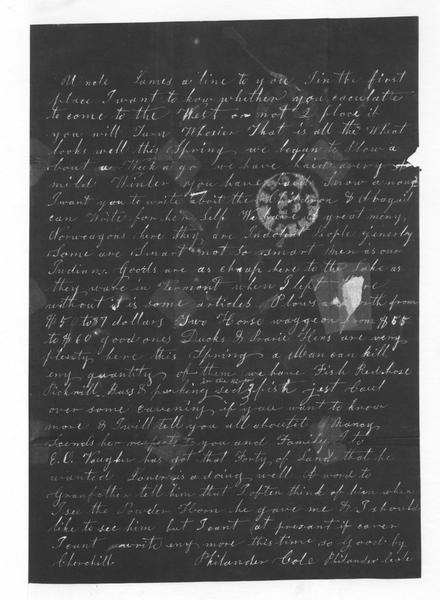 Uncle James a line to you I in the first
place I want to know whither you caculate
to come to the West or not I place it
you will Turn Whosier That is all the What
looks well this Spring we began to Plow a
bout a Week a go we have haid avery
mild Winter you have had Snow a noug
I want you to write about the & Abagail
can Write for her Self We have a great meny
Norweagons here they are Indo People generly
Some are Smart not So Smart Men as our
Indians. Goods are as cheap here to the as
they ware in Vermont when I left
without it is some articles Plows from
$5 to $7 dollars Two Horse waggeon from $55
to $60 good ones Ducks & Prarie Hens are very
plenty here this Spring a Man can kill
eny quantity of them we have Fish Redshose
Pickrill Bass & in the River & fish jest Coul
over some eavening if you want to know
more & I will tell you all about it Nancy
Scends her respects to you and Family to
E. C. Vaughn has got that Forty of Land that he
wanted Loueza is a doing well A word to
Granfother tell him that I often think of him when
I see the Powder Horn he gave me & I should
like to see him but I cant at presant if ever
I cant write eny more this time So Good by
Churchill Philander Cole Philander Cole